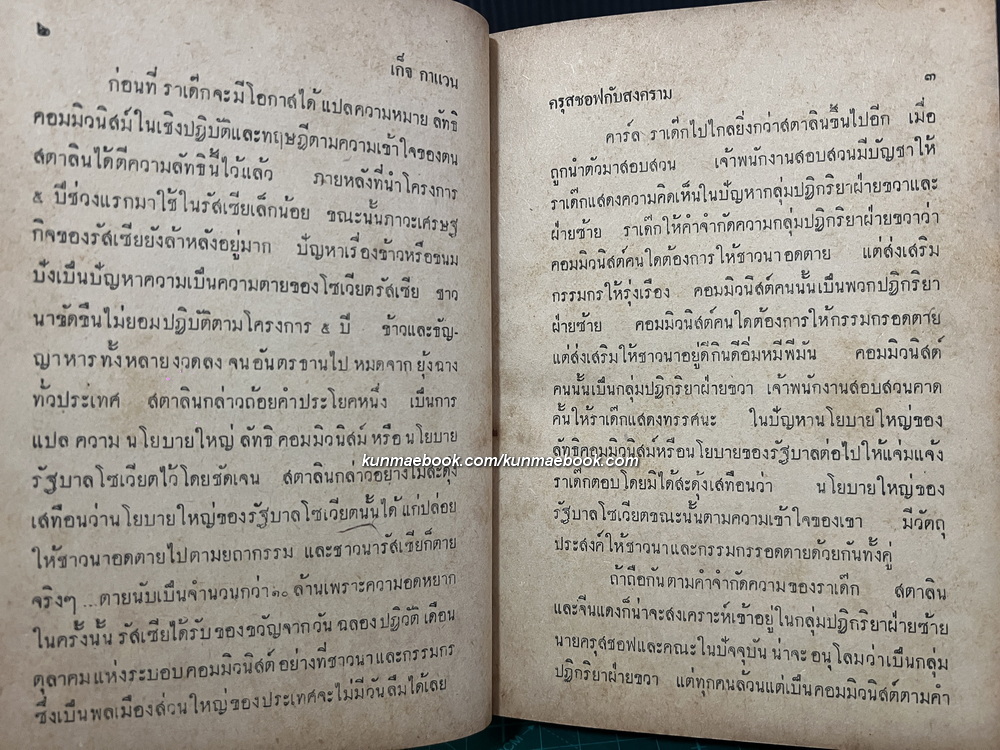 ๒
เก็จ กาแวน
ก่อนที่ ราเด๊กจะมีโอกาสได้ แปลความหมาย ลัทธิ
คอมมิวนิสม์ ในเชิงปฏิบัติและทฤษฎีตามความเข้าใจของตน
สตาลินได้ตีความลัทธินี้ไว้แล้ว ภายหลังที่นำโครงการ
๕ ปีช่วงแรกมาใช้ในรัสเซียเล็กน้อย ขณะนั้นภาวะเศรษฐ
กิจของรัสเซียยังล้าหลังอยู่มาก ปัญหาเรื่องข้าวหรือขนม
ปังเป็นปัญหาความเป็นความตายของโซเวียตรัสเซีย ชาว
นาขัดขืนไม่ยอมปฏิบัติตามโครงการ ๕ ปี ข้าวและธัญ-
ญาหารทั้งหลายงวดลง จนอันตรธานไป หมดจาก ยุ้งฉาง
ทั่วประเทศ สตาลินกล่าวถ้อยคำประโยคหนึ่ง เป็นการ
แปล ความ นโยบายใหญ่ ลัทธิ คอมมิวนิสม์ หรือ นโยบาย
รัฐบาลโซเวียตไว้โดยชัดเจน สตาลินกล่าวอย่างไม่สะดุ้ง
เสทือนว่านโยบายใหญ่ของรัฐบาลโซเวียตนั้นได้ แก่ปล่อย
ให้ชาวนาอดตายไปตามยถากรรม และชาวนารัสเซียก็ตาย
จริงๆ ...ตายนับเป็นจำนวนกว่า ๑๐ ล้านเพราะความอดหยาก
ในครั้งนั้น รัสเซียได้รับ ของขวัญจากวัน ฉลอง ปฏิวัติ เดือน
ตุลาคมแห่งระบอบคอมมิวนิสต์ อย่างที่ชาวนาและกรรมกร
ซึ่งเป็นพลเมืองส่วนใหญ่ของประเทศจะไม่มีวันลืมได้เลย
ครุสชอฟกับสงคราม
๓
คาร์ล ราเด๊กไปไกลยิ่งกว่าสตาลินขึ้นไปอีก เมื่อ
ถูกนำตัวมาสอบสวน เจ้าพนักงานสอบสวนมีบัญชาให้
ราเด๊กแสดงความคิดเห็นในปัญหากลุ่มปฏิกริยาฝ่ายขวาและ
ฝ่ายซ้าย ราเด๊กให้คำจำกัดความกลุ่มปฏิกริยาฝ่ายขวาว่า
คอมมิวนิสต์คนใดต้องการให้ชาวนาอดตาย แต่ส่งเสริม
กรรมกรให้รุ่งเรือง คอมมิวนิสต์คนนั้นเป็นพวกปฏิกริยา
ฝ่ายซ้าย คอมมิวนิสต์คนใดต้องการให้กรรมกรอดตาย
แต่ส่งเสริมให้ชาวนาอยู่ดีกินดีอิ่มหมีพีมัน คอมมิวนิสต์
คนนั้นเป็นกลุ่มปฏิกริยาฝ่ายขวา เจ้าพนักงานสอบสวนคาด
คั้นให้ราเด๊กแสดงทรรศนะ ในปัญหานโยบายใหญ่ของ
ลัทธิคอมมิวนิสม์หรือนโยบายของรัฐบาลต่อไปให้แจ่มแจ้ง
ราเด๊กตอบโดยมิได้สะดุ้งเสทือนว่า นโยบายใหญ่ของ
รัฐบาลโซเวียตขณะนั้นตามความเข้าใจของเขา มีวัตถุ
ประสงค์ให้ชาวนาและกรรมกรอดตายด้วยกันทั้งคู่
ถ้าถือกันตามคำจำกัดความของราเด๊ก สตาลิน
และจีนแดงก็น่าจะสงเคราะห์เข้าอยู่ในกลุ่มปฏิกริยาฝ่ายซ้าย
นายครุสชอฟและคณะในปัจจุบัน น่าจะ อนุโลมว่าเป็นกลุ่ม
ปฏิกริยาฝ่ายขวา แต่ทุกคนล้วนแต่เป็นคอมมิวนิสต์ตามคำ
kunmaebook.com/kunmaebook.com